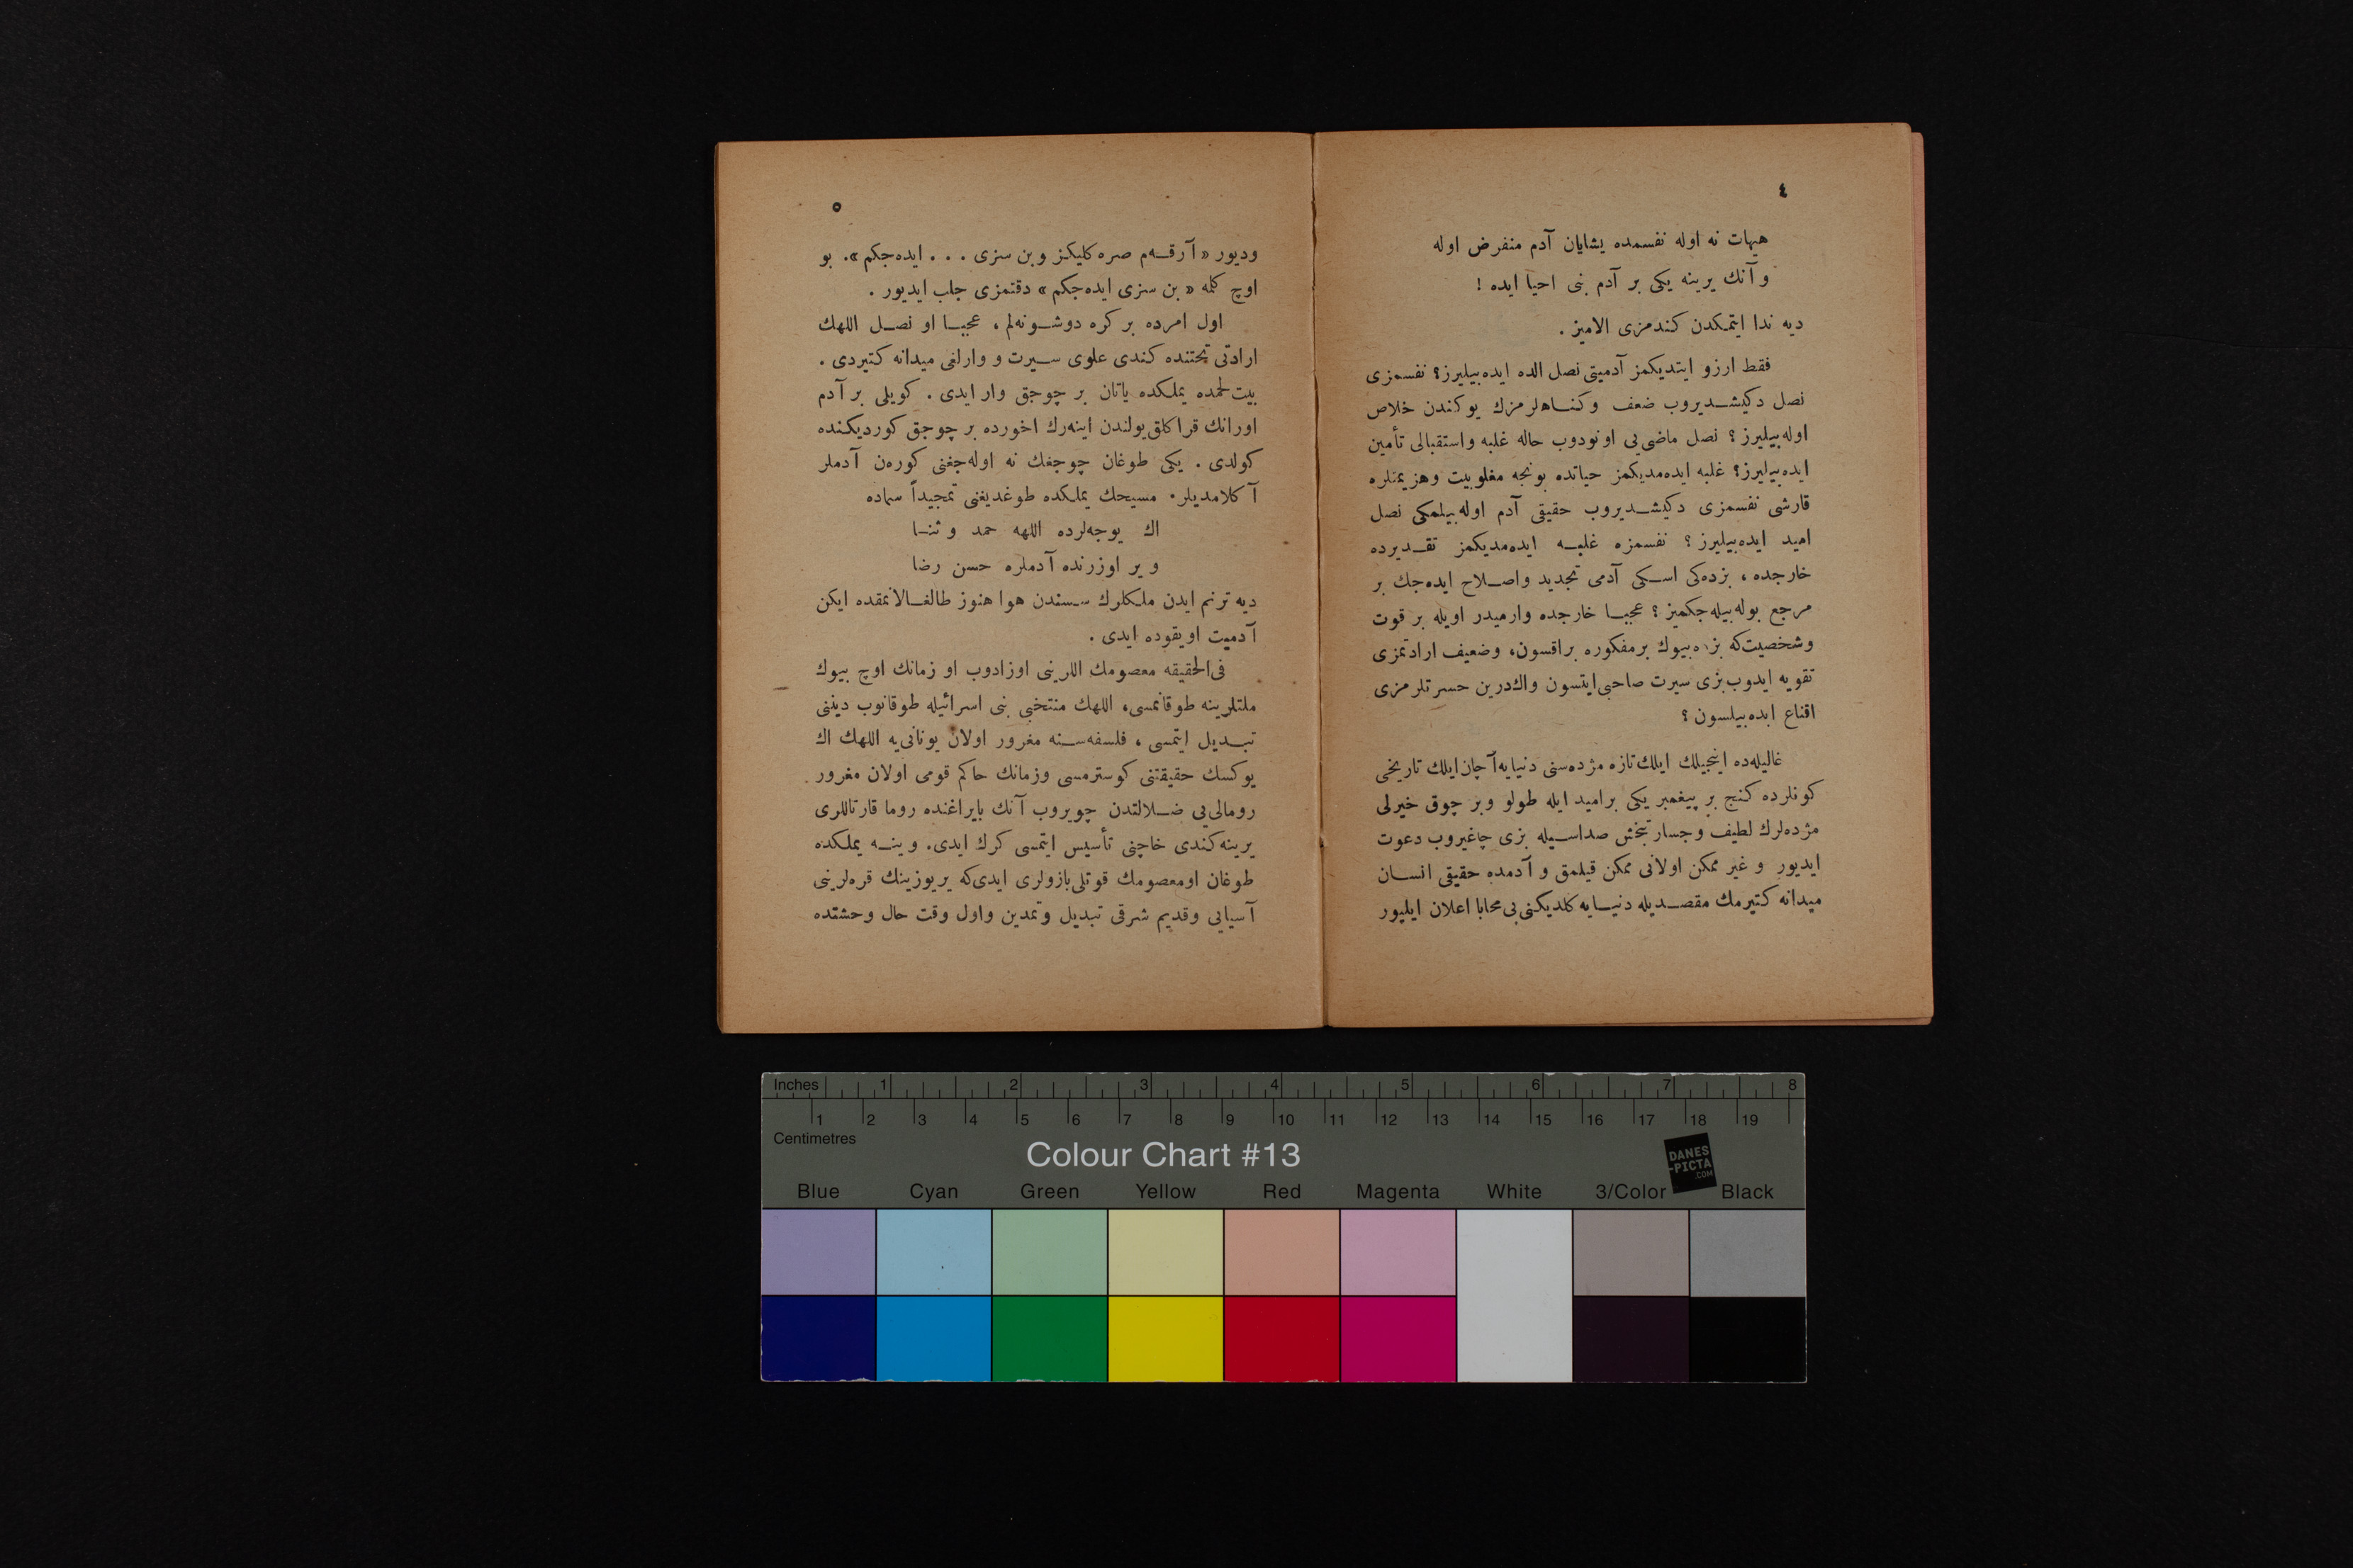 ٤
هيهات نه اوله نفسمده يشايان آدم منقرض اوله
و آنك يرينه يكى بر آدم بنى احيا ايده !
ديه ندا ايتمكدن كندمزى الاميز .
فقط ارزو ايتديكمز آدميتى نصل الده ايده بيليرز؟ نفسمزى
نصل دكيشـديروب ضعف وكنـاهلرمزك يوكندن خلاص
اوله بيليرز ؟ نصل ماضى يى اونودوب حاله غلبه واستقبالى تأمين
ايده بيليرز؟ غلبه ايده مديكمز حياتده بونجه مغلوبيت وهزيمتلره
قارشى نفسمزى دكيشـديروب حقيقى آدم اوله بيلمكى نصل
اميد ايده بيليرز ؟ نفسمزه غلبـه ايده مديكمز تقـديرده
خارجده ، بزده كى اسـكى آدمى تجديد واصـلاح ايده جك بر
مرجع بوله بيله جكميز ؟ عجبـا خارجده وارميدر اويله بر قوت
وشخصيت كه بزه بيوك برمفكوره براقسون، وضعيف ارادتمزى
تقويه ايدوب بزى سيرت صاحبى ايتسون واك درين حسرتلرمزى
اقناع ايده بيلسون ؟
غاليله ده اينجيلك ايلك تازه مژده سنى دنيايه آچان ايلك تاريخى
كونلرده كنج بر پيغمبر يكى براميد ايله طولو وبر چوق خيرلى
مژده لرك لطيف وجسارتبخش صداسـيله بزى چاغيروب دعوت
ايديور و غير ممكن اولانى ممكن قيلمق و آدمده حقيقى انسـان
ميدانه كتيرمك مقصـديله دنيـايه كلديكنى بى محابا اعلان ايليور
٥
وديور « آرقـه م صره كليكز وبن سزى . . . ايده جكم ». بو
اوچ كلمه « بن سزى ايده جكم » دقتمزى جلب ايديور .
اول امرده بر كره دوشـونه لم ، عجبـا او نصـل اللهك
ارادتى تحتنده كندى علوى سـيرت و وارلغى ميدانه كتيردى .
بيت لحمده يملكده ياتان بر چوجق وار ايدى . كويلى بر آدم
اورانك قراكلق يولندن اينه رك اخورده بر چوجق كورديكنده
كولدى . يكى طوغان چوجغك نه اوله جغنى كوره ن آدملر
آكلامديلر. مسيحك يملكده طوغديغنى تمجيداً سماده
اك يوجه لرده اللهه حمد و ثنـا
و ير اوزرنده آدملره حسن رضا
ديه ترنم ايدن ملكلرك سسندن هوا هنوز طالغـالانمقده ايكن
آدميت اويقوده ايدى .
فى الحقيقه معصومك اللرينى اوزادوب او زمانك اوچ بيوك
ملتلرينه طوقانمسى، اللهك منتخبى بنى اسرائيله طوقانوب دينى
تبـديل ايتمسى ، فلسفه سـنه مغرور اولان يونانى يه اللهك اك
يوكسك حقيقتنى كوسترمسى وزمانك حاكم قومى اولان مغرور
رومالى يى ضـلالتدن چويروب آنك بايراغنده روما قارتاللرى
يرينه كندى خاچنى تأسيس ايتمسى كرك ايدى. وينـه يملكده
طوغان اومعصومك قوتلى بازولرى ايدى كه يريوزينك قره لرينى
آسيايى وقديم شرقى تبديل وتمدين واول وقت حال وحشتده
Inches 1 2 3 4 5 6 7 8
1 2 3 4 5 6 7 8 9 10 11 12 13 14 15 16 17 18 19
Centimetres
Colour Chart #13
DANES
-PICTA
.COM
Blue Cyan Green Yellow Red Magenta White 3/Color Black